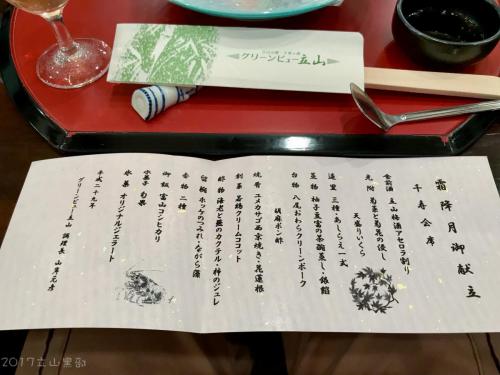 グリーンビュー立山
霜降月御献立
千寿会席
食前酒 立山梅酒アセロラ割り
先附 菊菜と菊花の浸し
天盛りいくら
造里 三種・あしらえ一式
蓋物 柚子豆富の茶碗蒸し・銀餡
台物 八尾おわらクリーンポーク
胡麻ポン酢
焼肴 ユメカサゴ西京焼き・花蓮根
割菜 若鶏クリームココット
酢物 海老と蕪のカクテル・柿のジュレ
留椀 ホッケのつみれ・ながら藻
香物 二種
御飯 富山コシヒカリ
水菓子 旬果
氷菓 オリジナルジェラート
平成二十九年
グリーンビュー立山 調理長 山岸元彦
2017立山黒部